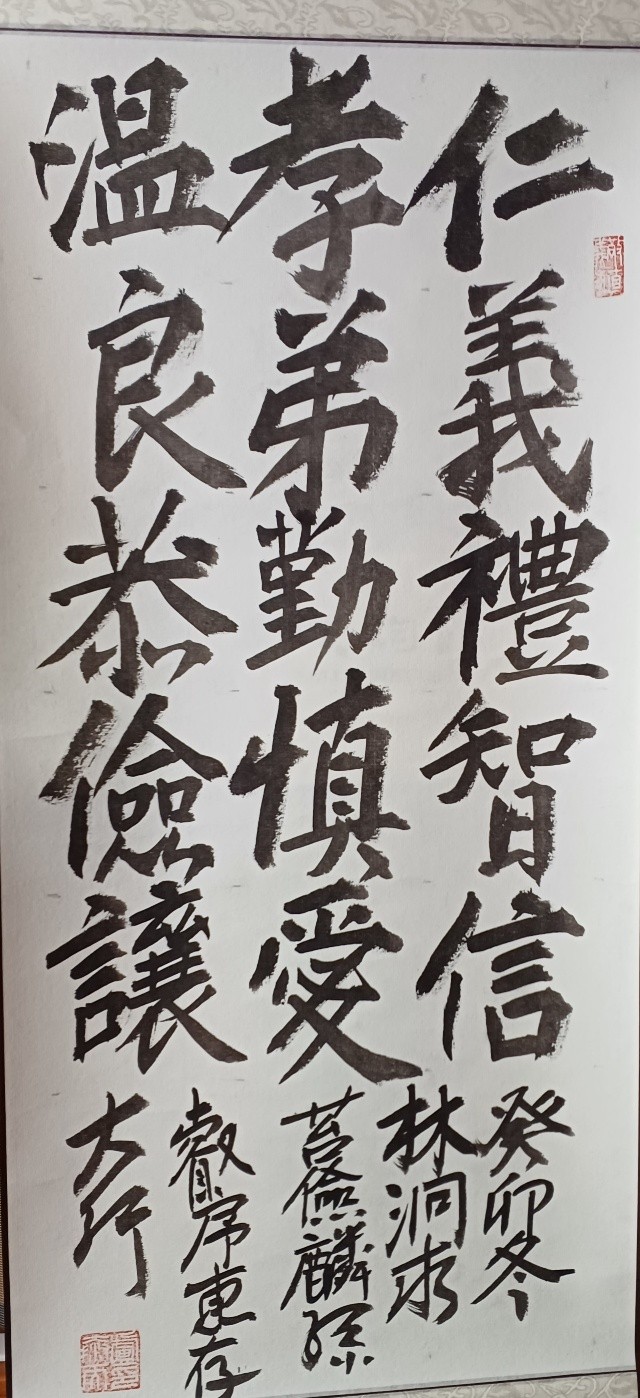 仁義禮智信
孝弟勤慎愛
温良恭儉讓
癸卯冬
林洞求
麟孫
東存
大行